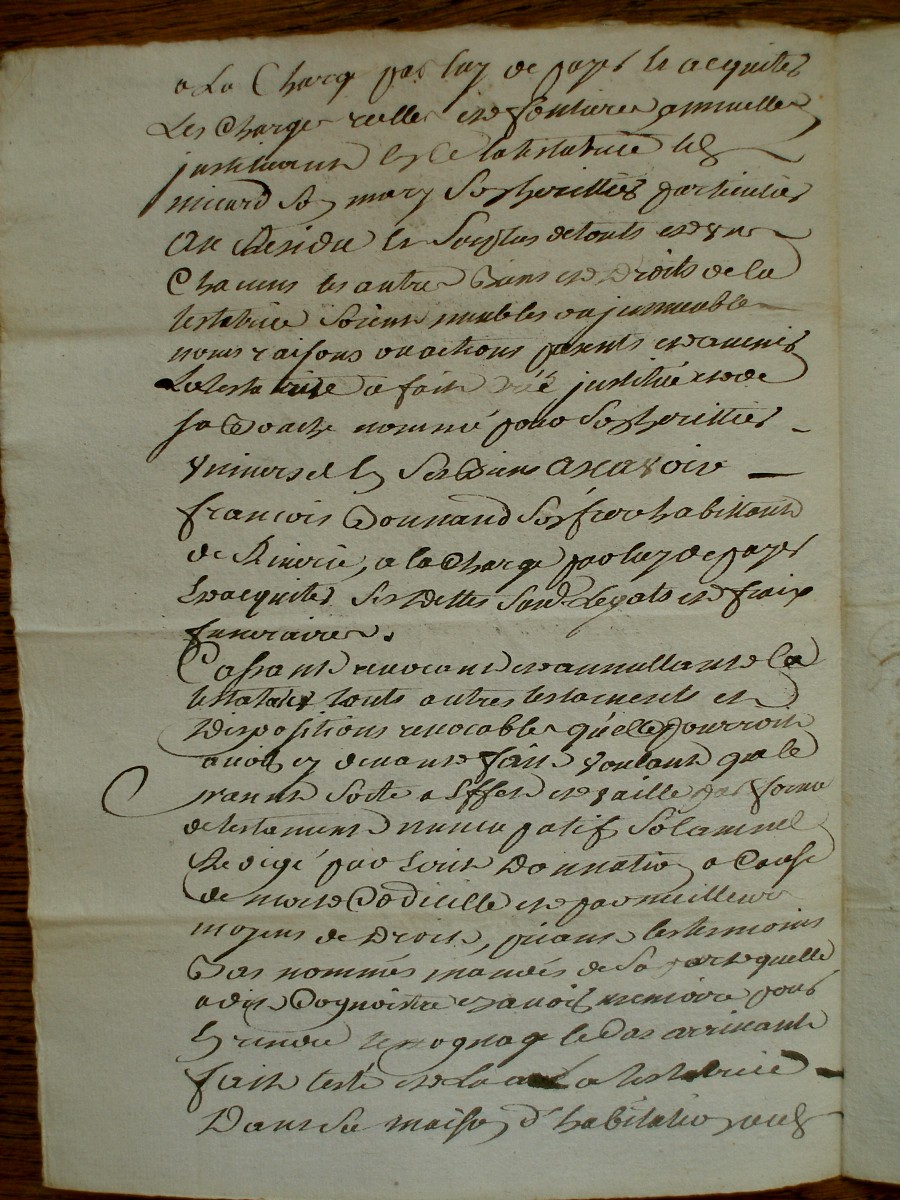 a La Charge par luy de payer et acquiter
Les Charges reelles et fontieres annuelles
justituant la testatrice led
micard so mary son heritier particulier
Au Residu et Surplus de touts et un
Chacuns les autres Biens et Droits de la
testatrice soient meubles ou jmmeubles
noms raisons ou actions presents et avenir
La testatrice a fait créé justitué et de
sa Bouche nommé pour son heritier
universel en ses Biens ascavoir
francois Bonnand son frere habittant
de , a la Charge par luy de payer
et acquiter ses Dettes Legats et fraix
funeraires.
Cassant revocant et annullant la
testatrix touts autres testaments et
Dispositions revocables quelle pourroit
avoir cy devant fait voulant que le
present sorte a Effet et vaille par forme
de testament nuncupatif solamnel
Redigé par Ecrit Donnatio a Cause
de mort Codicille et par meilleurs
moyens de Droit, priant les temoins
Bas nommés mandés de sa part quelle
a dit Cognoitre et avoir memoire pour
En rendre temognage le Cas arrivant
fait testé et a la testatrice
Dans sa maison d'habitatio